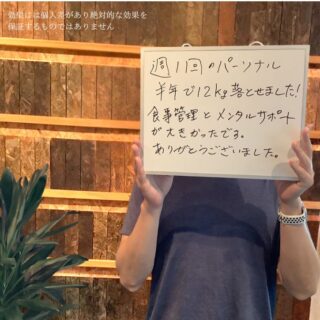 効果には個人差があり絶対的な効果を
保証するものではありません
週1回のパーソナル
半年で12kg落とせました!
食事管理とメンタルサポート
が大きかったです。
ありがとうございました。